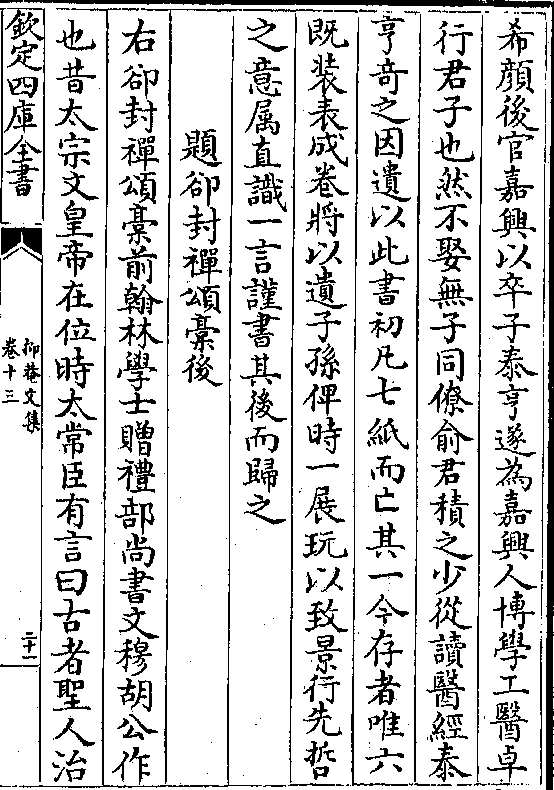 希顔後官嘉興以卒子泰亨遂為嘉興人博學工醫卓
行君子也然不娶無子同僚俞君積之少從讀醫經泰
亨奇之因遺以此書初凡七紙而亡其一今存者唯六
既装表成卷將以遺子孫俾時一展玩以致景行先哲
之意属直識一言謹書其後而歸之
題卻封禪頌藁後
右卻封禪頌藁前翰林學士贈禮部尚書文穆胡公作
也昔太宗文皇帝在位時太常臣有言曰古者聖人治
欽定四庫全書
抑菴文集
卷十三
二十一